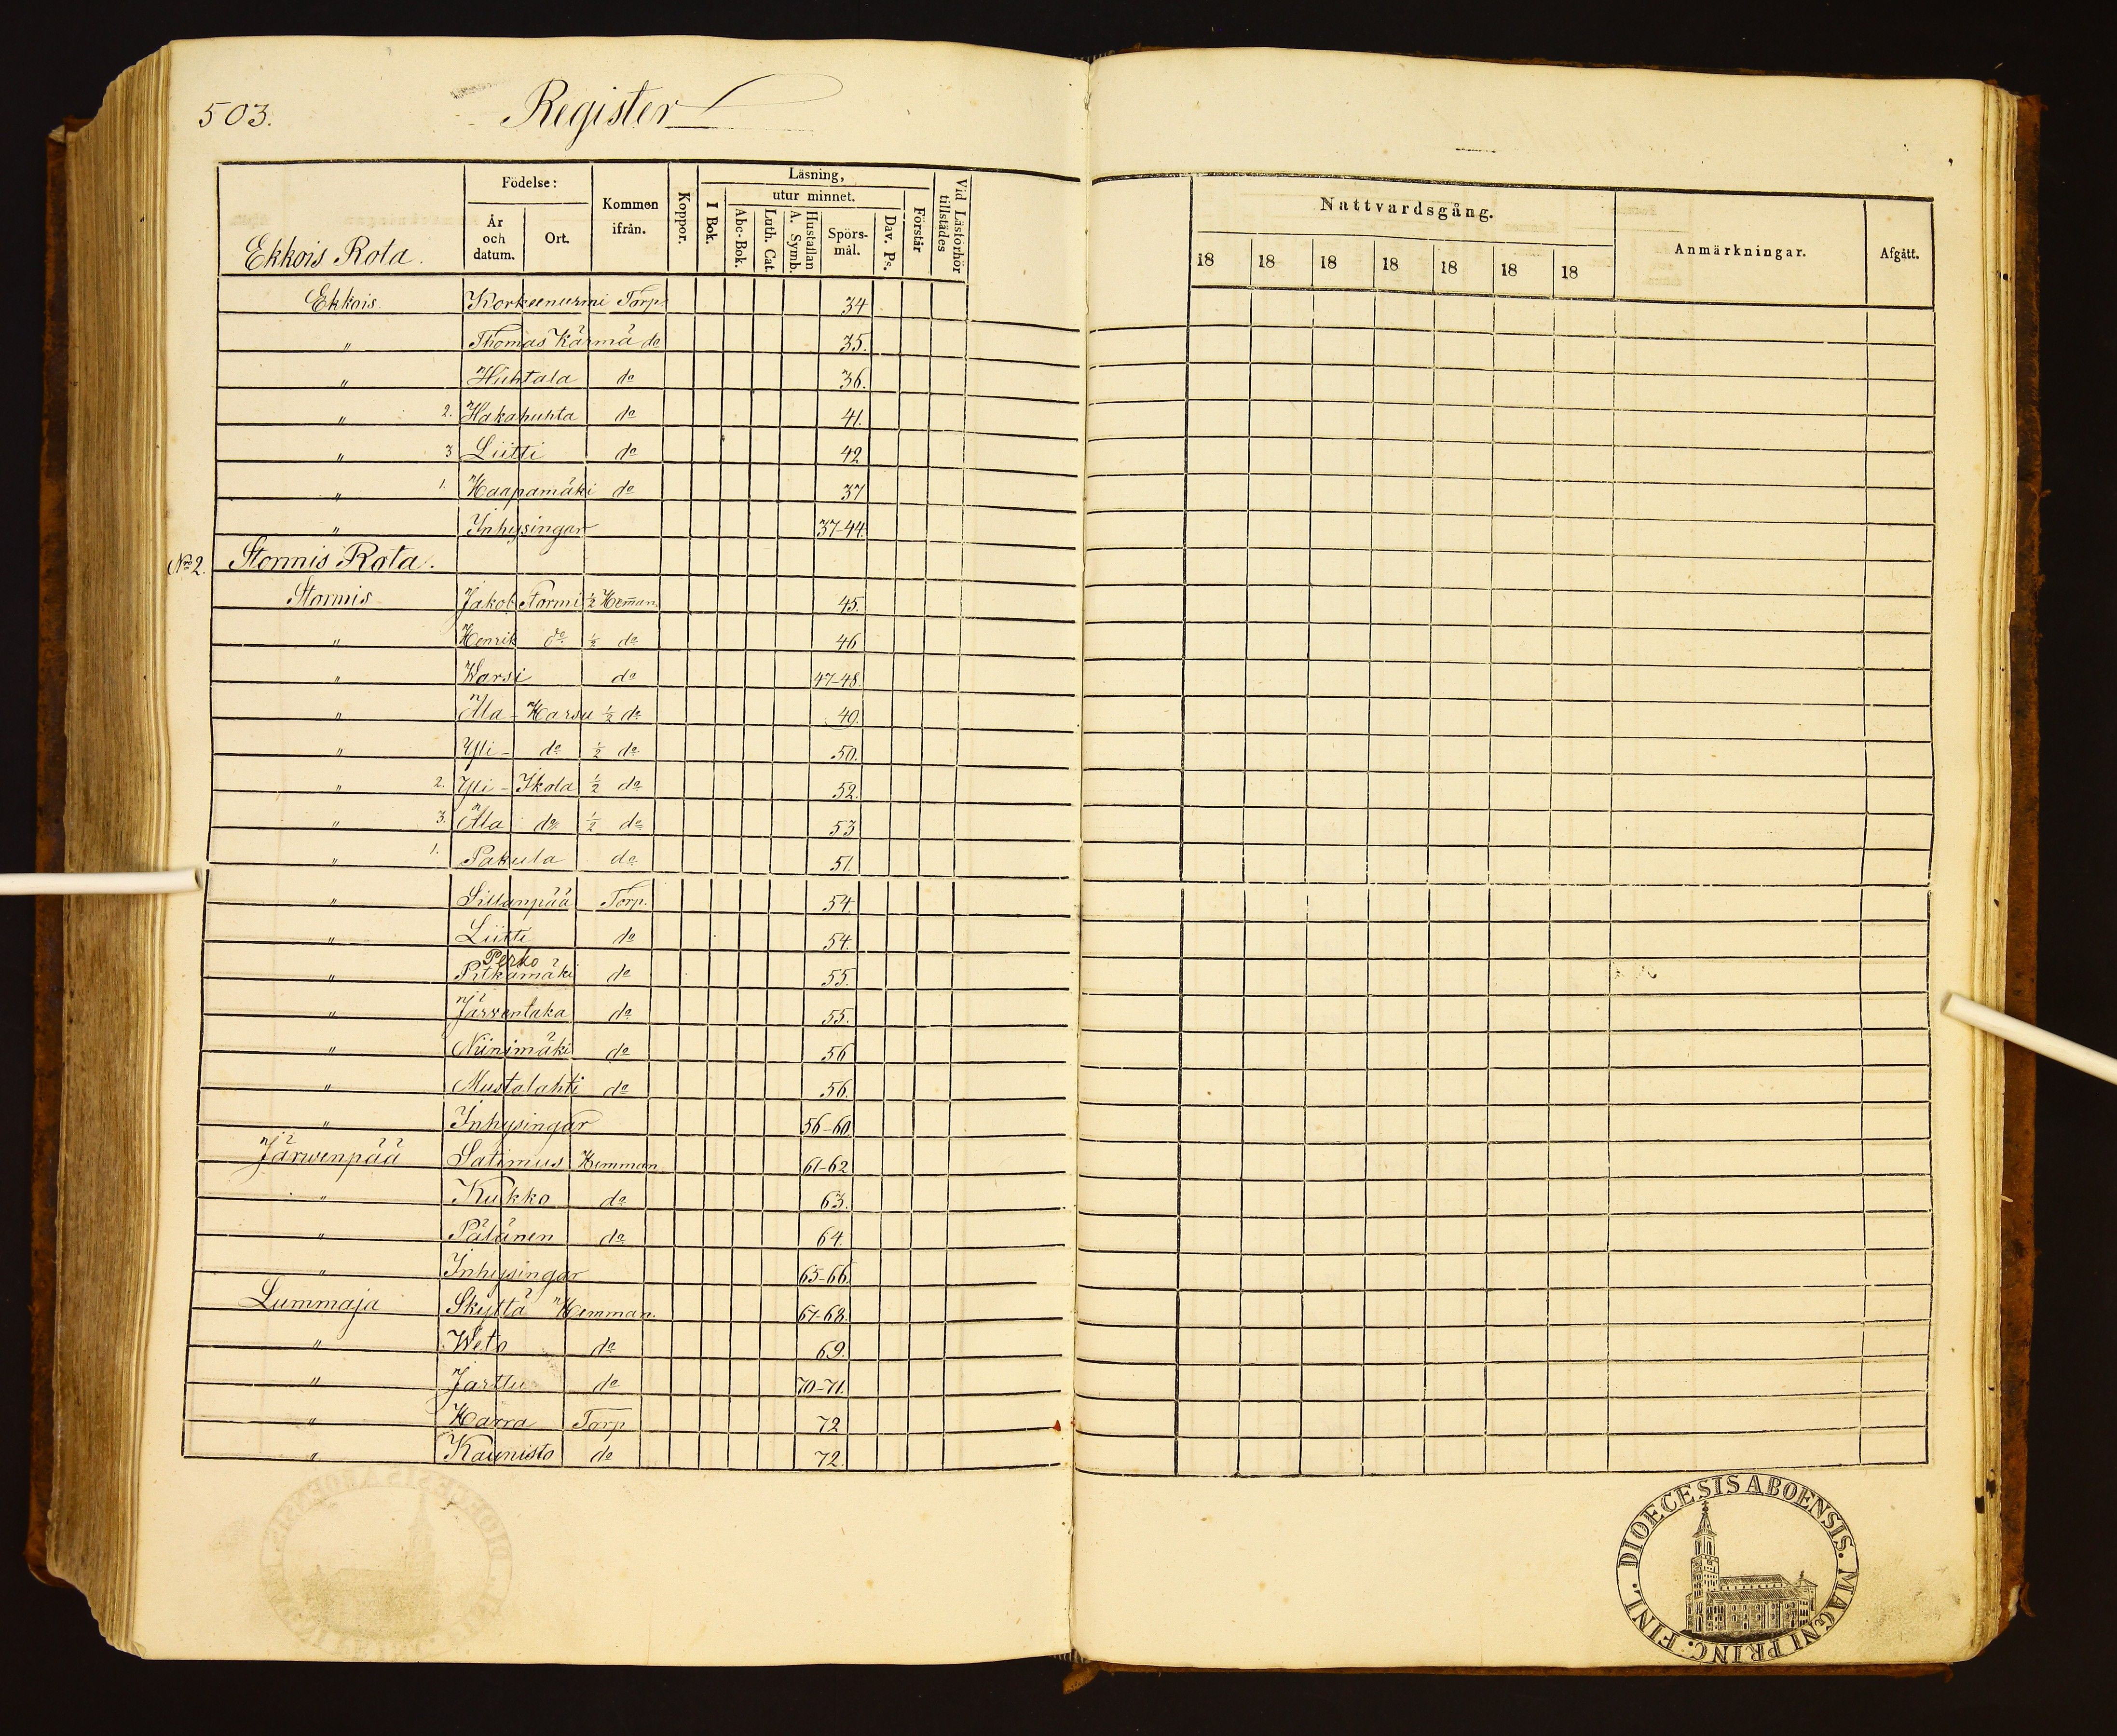 503. Register
Födelse:
År och datum.
Ort.
Kommen ifrån.
Koppor.
Läsning,
I Bok.
utur minnet.
Abc-Bok.
Luth. Cat.
Hustaflan A. Symb.
Spörs-mål.
Dav. Ps.
Förstår
Vid Läsförhör tillstädes
Ekkois Rota.
Ekkois Korkeenurmi Torp. 34
" Thomas Kärmä do 35.
" Huhtala do 36.
" 2. Hakahuhta do 41.
" 3 Liitti do 42
" 1. Haapamäki do 37
" Inhysingar 37-44.
No 2. Stormis Rota.
Stormis Jakob Stormi ½ Hemman 45.
" Henrik do ½ do 46
" Warsi do 47-48.
" Ala-Harsu ½ do 49.
" Yli- do ½ do 50.
" 2. Yli-Ikola ½ do 52.
" 3. Ala do ½ do 53
" 1. Pakula do 51.
" Sillanpää Torp. 54.
" Liitti do 54.
Perko
" Pitkämäki do 55.
" Järventaka do 55.
" Niinimäki do 56
" Mustalahti do 56.
" Inhysingar 56-60.
Järwenpää Satimus Hemman 61-62
" Kukko do 63.
" Pälänen do 64.
" Inhysingar 65-66.
Lummaja Skyttä Hemman. 67-68.
" Weto do 69.
" Jarttu do 70-71.
" Harra Torp 72
" Kaunisto do 72.
Nattvardsgång.
18 18 18 18 18 18 18
Anmärkningar.
Afgått.
DIOECESIS ABOENSIS. MAGNI PRINC. FINL.